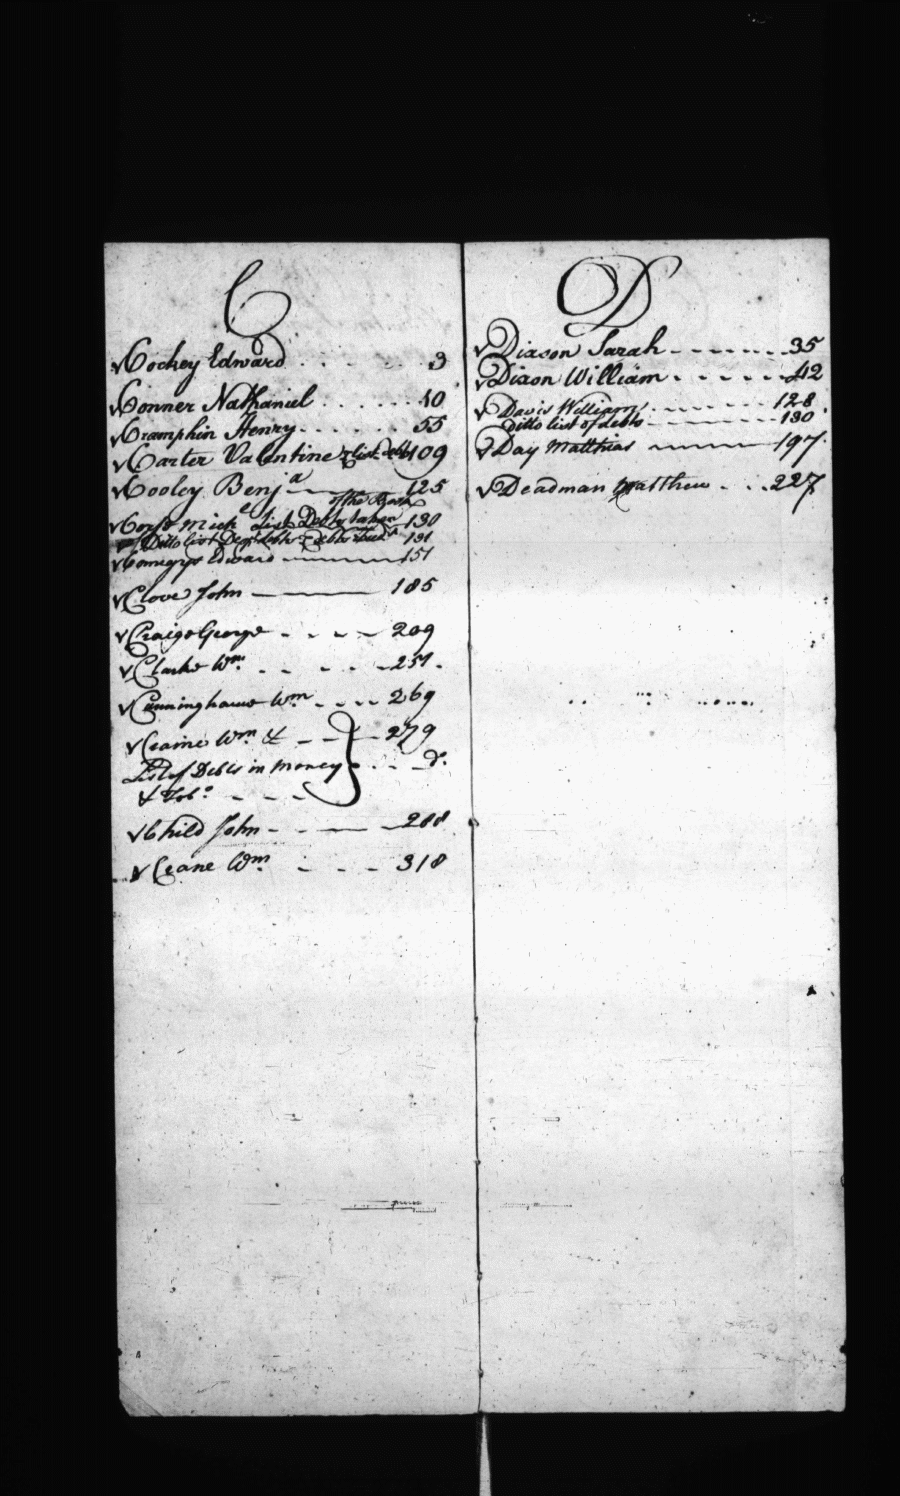 C
Cockey Edward 3
Conner Nathaniel 10
Cramphin Henry 55
Carter Valentine & list debts 109
Cooley Benja 125
of the Books
Mich.l List Debts taken 130
Ditto list Desp. debts & debts 131
Comegys Edward 151
Clove John 185
Craige George 209
Clarke Wm. 251
Cunninghame Wm. 269
Craine Wm. & 279
List of Debts in money do.
& Tobo.
Child John 288
Crane Wm. 318
D
Dixson Sarah 35
Dixon William 42
Davis William 128
Ditto list of debts 130
Day Matthias 197
Deadman Matthew 227